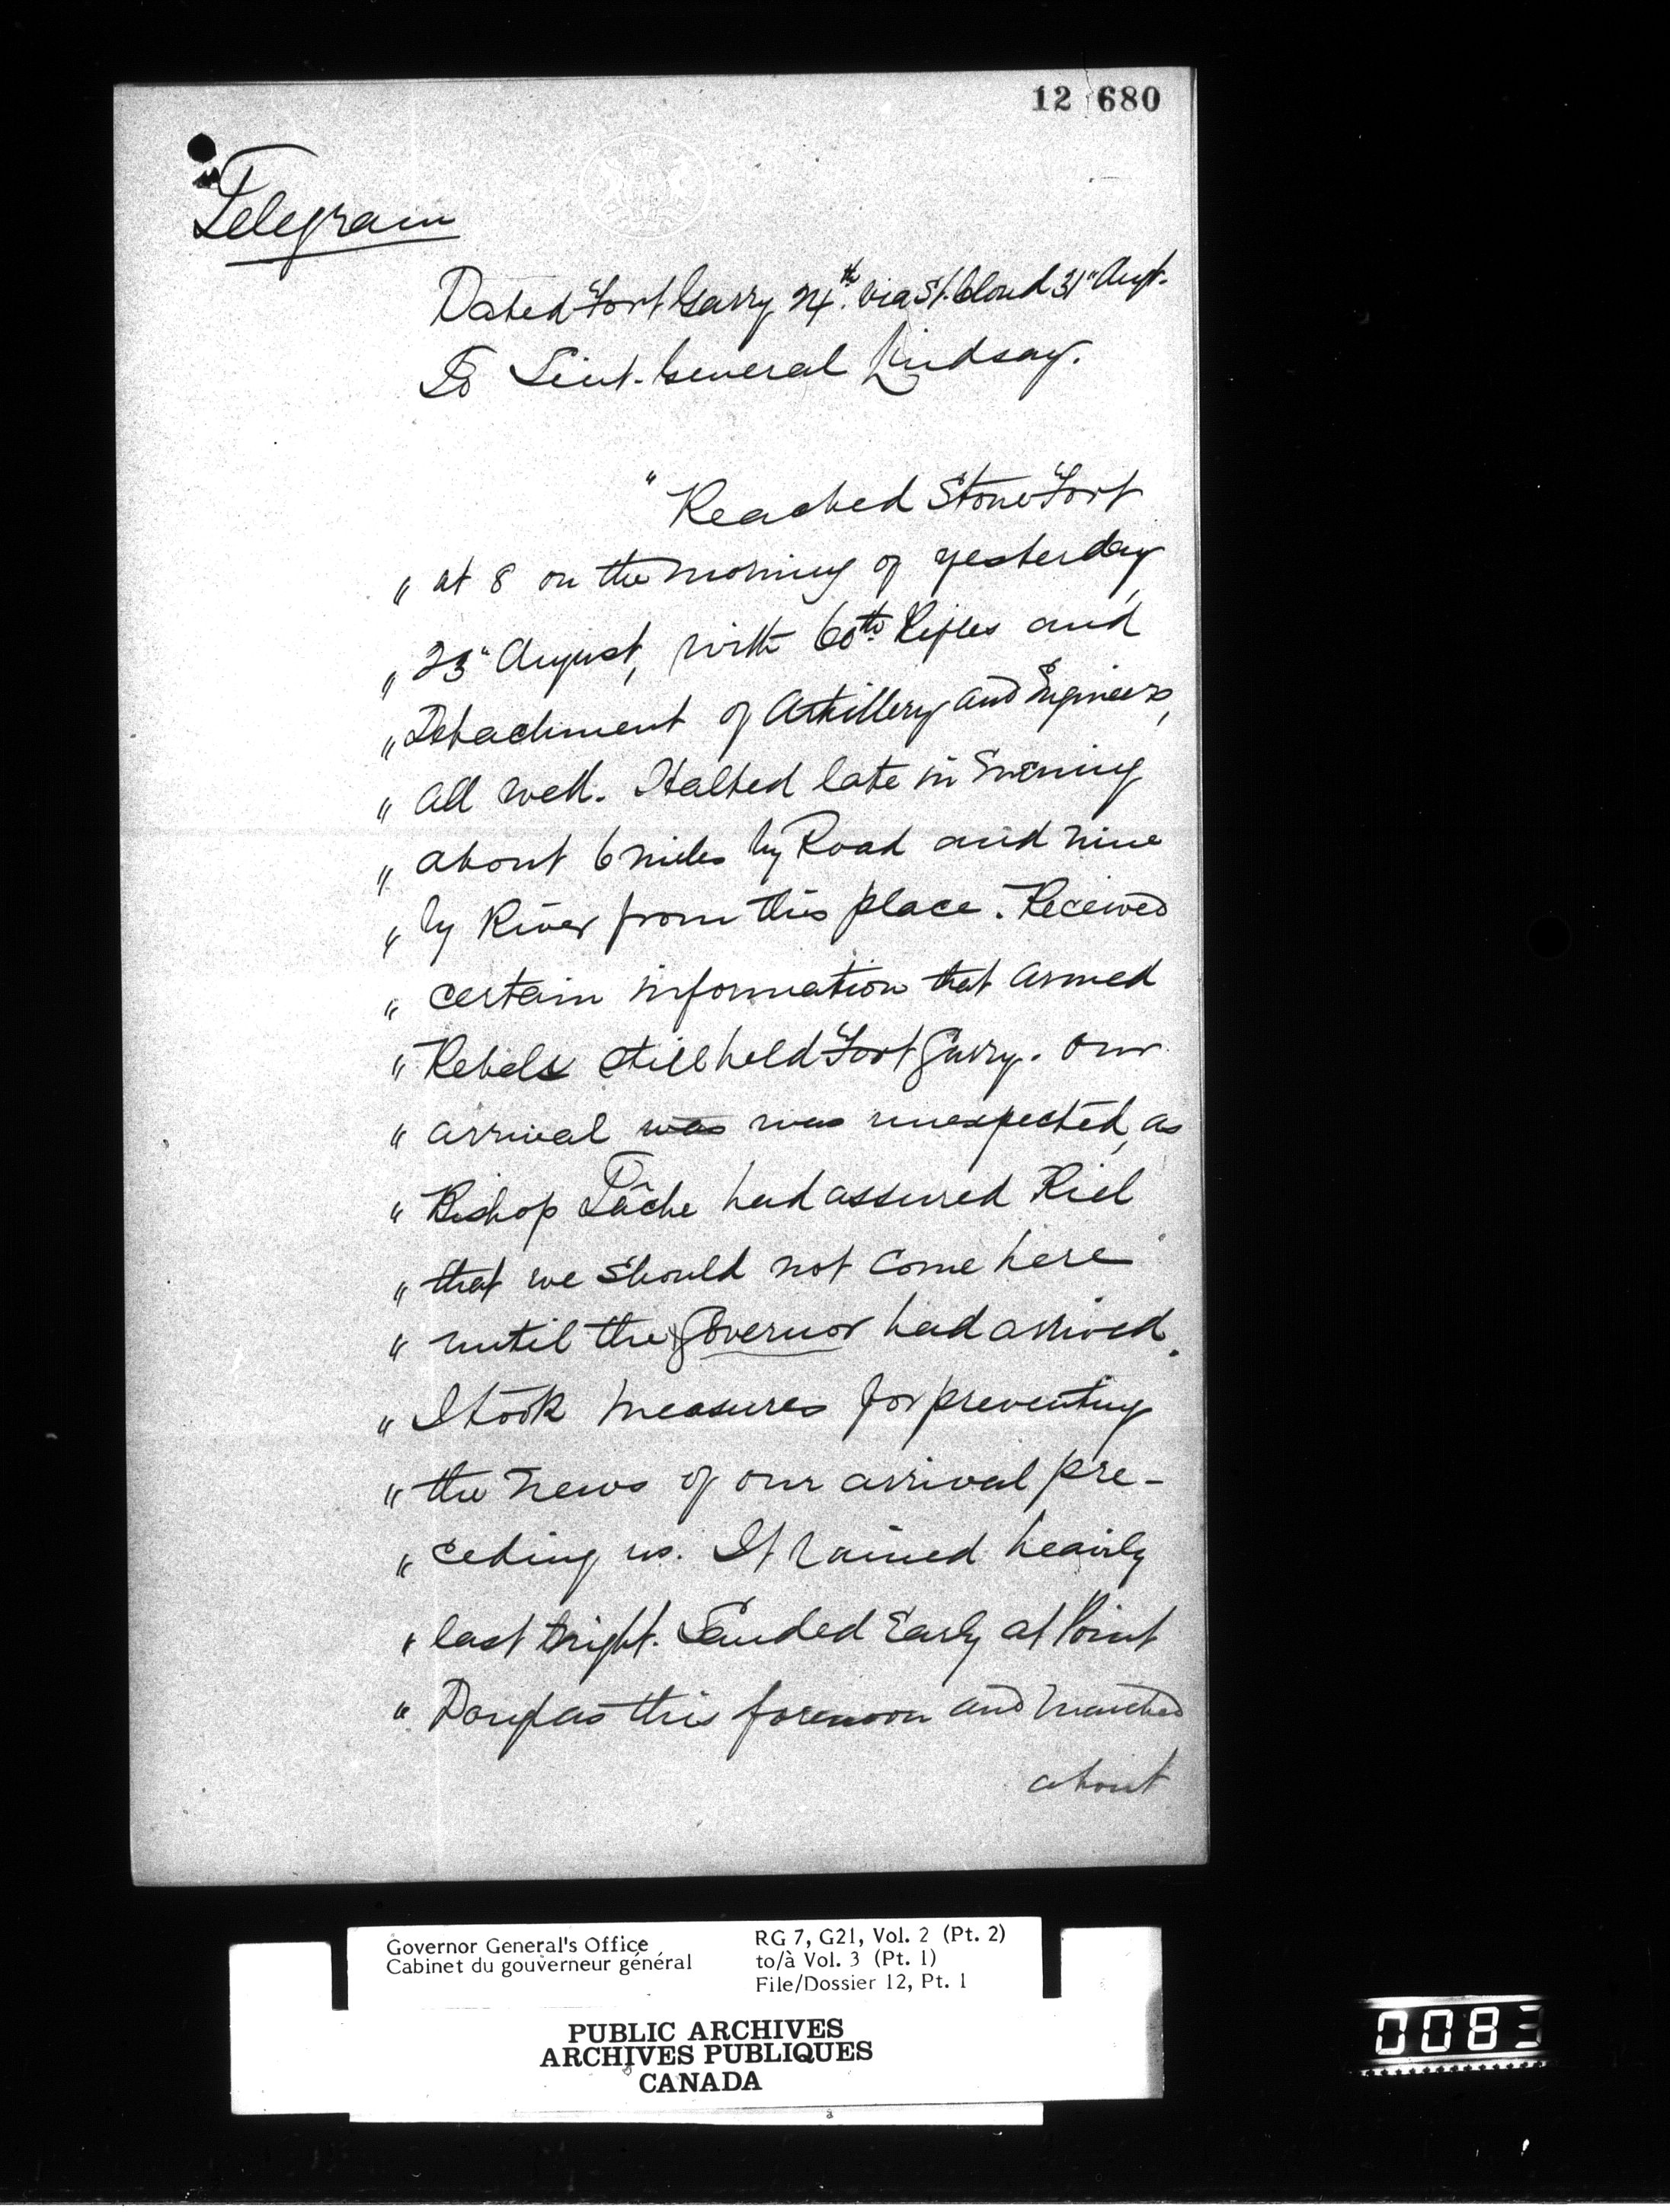 12 680
Telegram
Dated Fort Garry 24th. via St. Cloud 31" Augt.
To Lieut. General Lindsay.
" Reached Stone Fort
" at 8 on the morning of yesterday,
" 23" August, with 60th. Rifles and
" Detachment of Artillery and Engineers,
" all well. Halted late in Evening
" about 6 miles by Road and nine
" by River from this place. Received
" certain information that armed
" Rebels still held Fort Garry. Our
" arrival was was unexpected, as
" Bishop Tâche had assured Riel
" that we should not come here
" until the Governor had arrived.
" I took measures for preventing
" the news of our arrival pre-
" ceding us. It rained heavily
" last night. Landed Early at Point
" Douglas this forenoon and marched
about
Governor General's Office
Cabinet du gouverneur général
RG 7, G21, Vol. 2 (Pt. 2)
to/à Vol. 3 (Pt. 1)
File/Dossier 12, Pt. 1
PUBLIC ARCHIVES
ARCHIVES PUBLIQUES
CANADA
0083